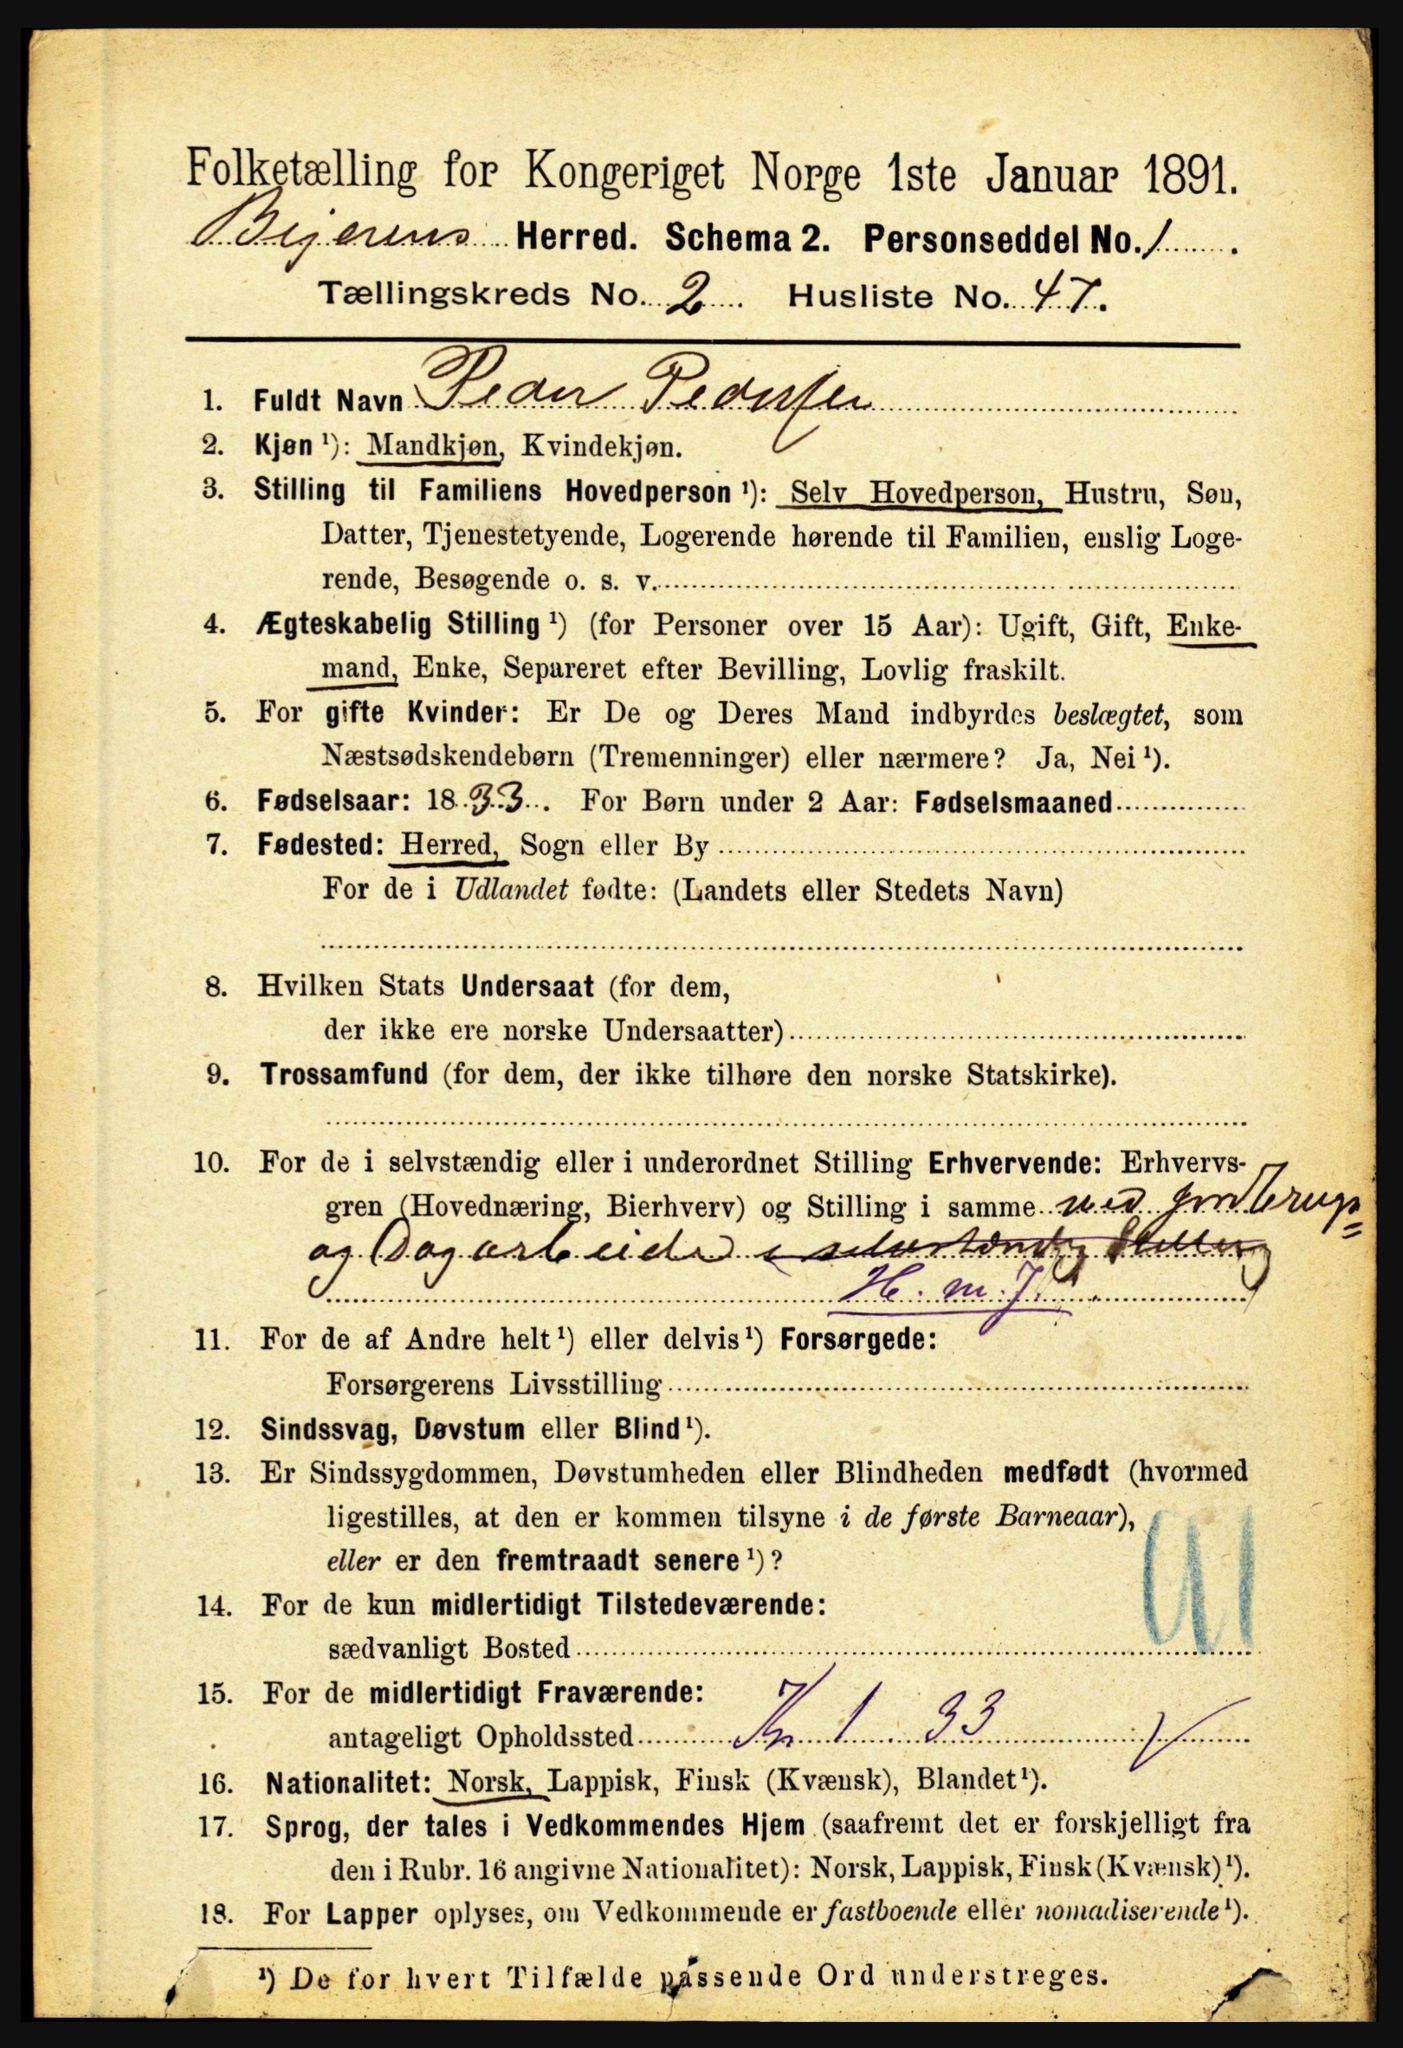 Folketælling for Kongeriget Norge 1ste Januar 1891.
Bejerens Herred. Schema 2. Personseddel No. 1.
Tællingskreds No. 2. Husliste No. 47.
1. Fuldt Navn Peder Pedersen
2. Kjøn ¹): Mandkjøn, Kvindekjøn.
3. Stilling til Familiens Hovedperson ¹): Selv Hovedperson, Hustru, Søn,
Datter, Tjenestetyende, Logerende hørende til Familien, enslig Loge-
rende, Besøgende o. s. v.
4. Ægteskabelig Stilling ¹) (for Personer over 15 Aar): Ugift, Gift, Enke-
mand, Enke, Separeret efter Bevilling, Lovlig fraskilt.
5. For gifte Kvinder: Er De og Deres Mand indbyrdes beslægtet, som
Næstsødskendebørn (Tremenninger) eller nærmere? Ja, Nei ¹).
6. Fødselsaar: 1833. For Børn under 2 Aar: Fødselsmaaned
7. Fødested: Herred, Sogn eller By
For de i Udlandet fødte: (Landets eller Stedets Navn)
8. Hvilken Stats Undersaat (for dem,
der ikke ere norske Undersaatter)
9. Trossamfund (for dem, der ikke tilhøre den norske Statskirke).
10. For de i selvstændig eller i underordnet Stilling Erhvervende: Erhvervs-
gren (Hovednæring, Bierhverv) og Stilling i samme med Jordbrugs=
og Dagarbeide i selvstændig Stilling
H. m. J.
11. For de af Andre helt ¹) eller delvis ¹) Forsørgede:
Forsørgerens Livsstilling
12. Sindssvag, Døvstum eller Blind ¹).
13. Er Sindssygdommen, Døvstumheden eller Blindheden medfødt (hvormed
ligestilles, at den er kommen tilsyne i de første Barneaar),
eller er den fremtraadt senere ¹)?
14. For de kun midlertidigt Tilstedeværende:
sædvanligt Bosted
15. For de midlertidigt Fraværende:
antageligt Opholdssted Kr 1. 33
16. Nationalitet: Norsk, Lappisk, Finsk (Kvænsk), Blandet ¹).
17. Sprog, der tales i Vedkommendes Hjem (saafremt det er forskjelligt fra
den i Rubr. 16 angivne Nationalitet): Norsk, Lappisk, Finsk (Kvænsk) ¹).
18. For Lapper oplyses, om Vedkommende er fastboende eller nomadiserende ¹).
¹) De for hvert Tilfælde passende Ord understreges.